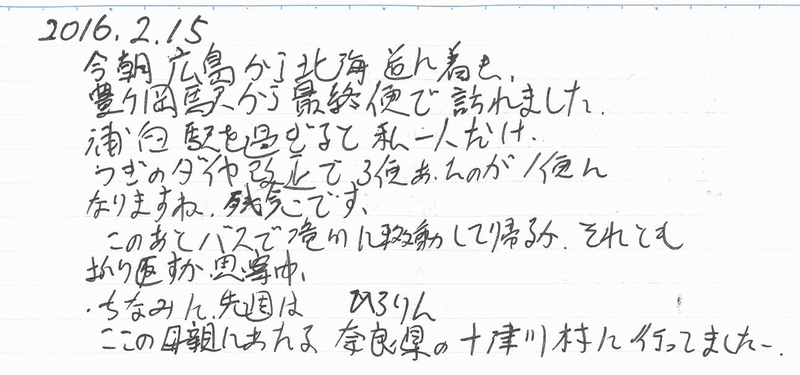 2016.2.15
今朝広島から北海道に着き、
豊ケ岡駅から最終便で訪れました。
浦臼駅を過ぎると私一人だけ。
つぎのダイヤ改正で、3便あったのが1便に
なりますね。残念です、
このあとバスで滝川に移動して帰るか、それとも
折り返すか思案中、
・ちなみに、先週は ひろりん
ここの母親にあたる奈良県の十津川村に行ってましたー。